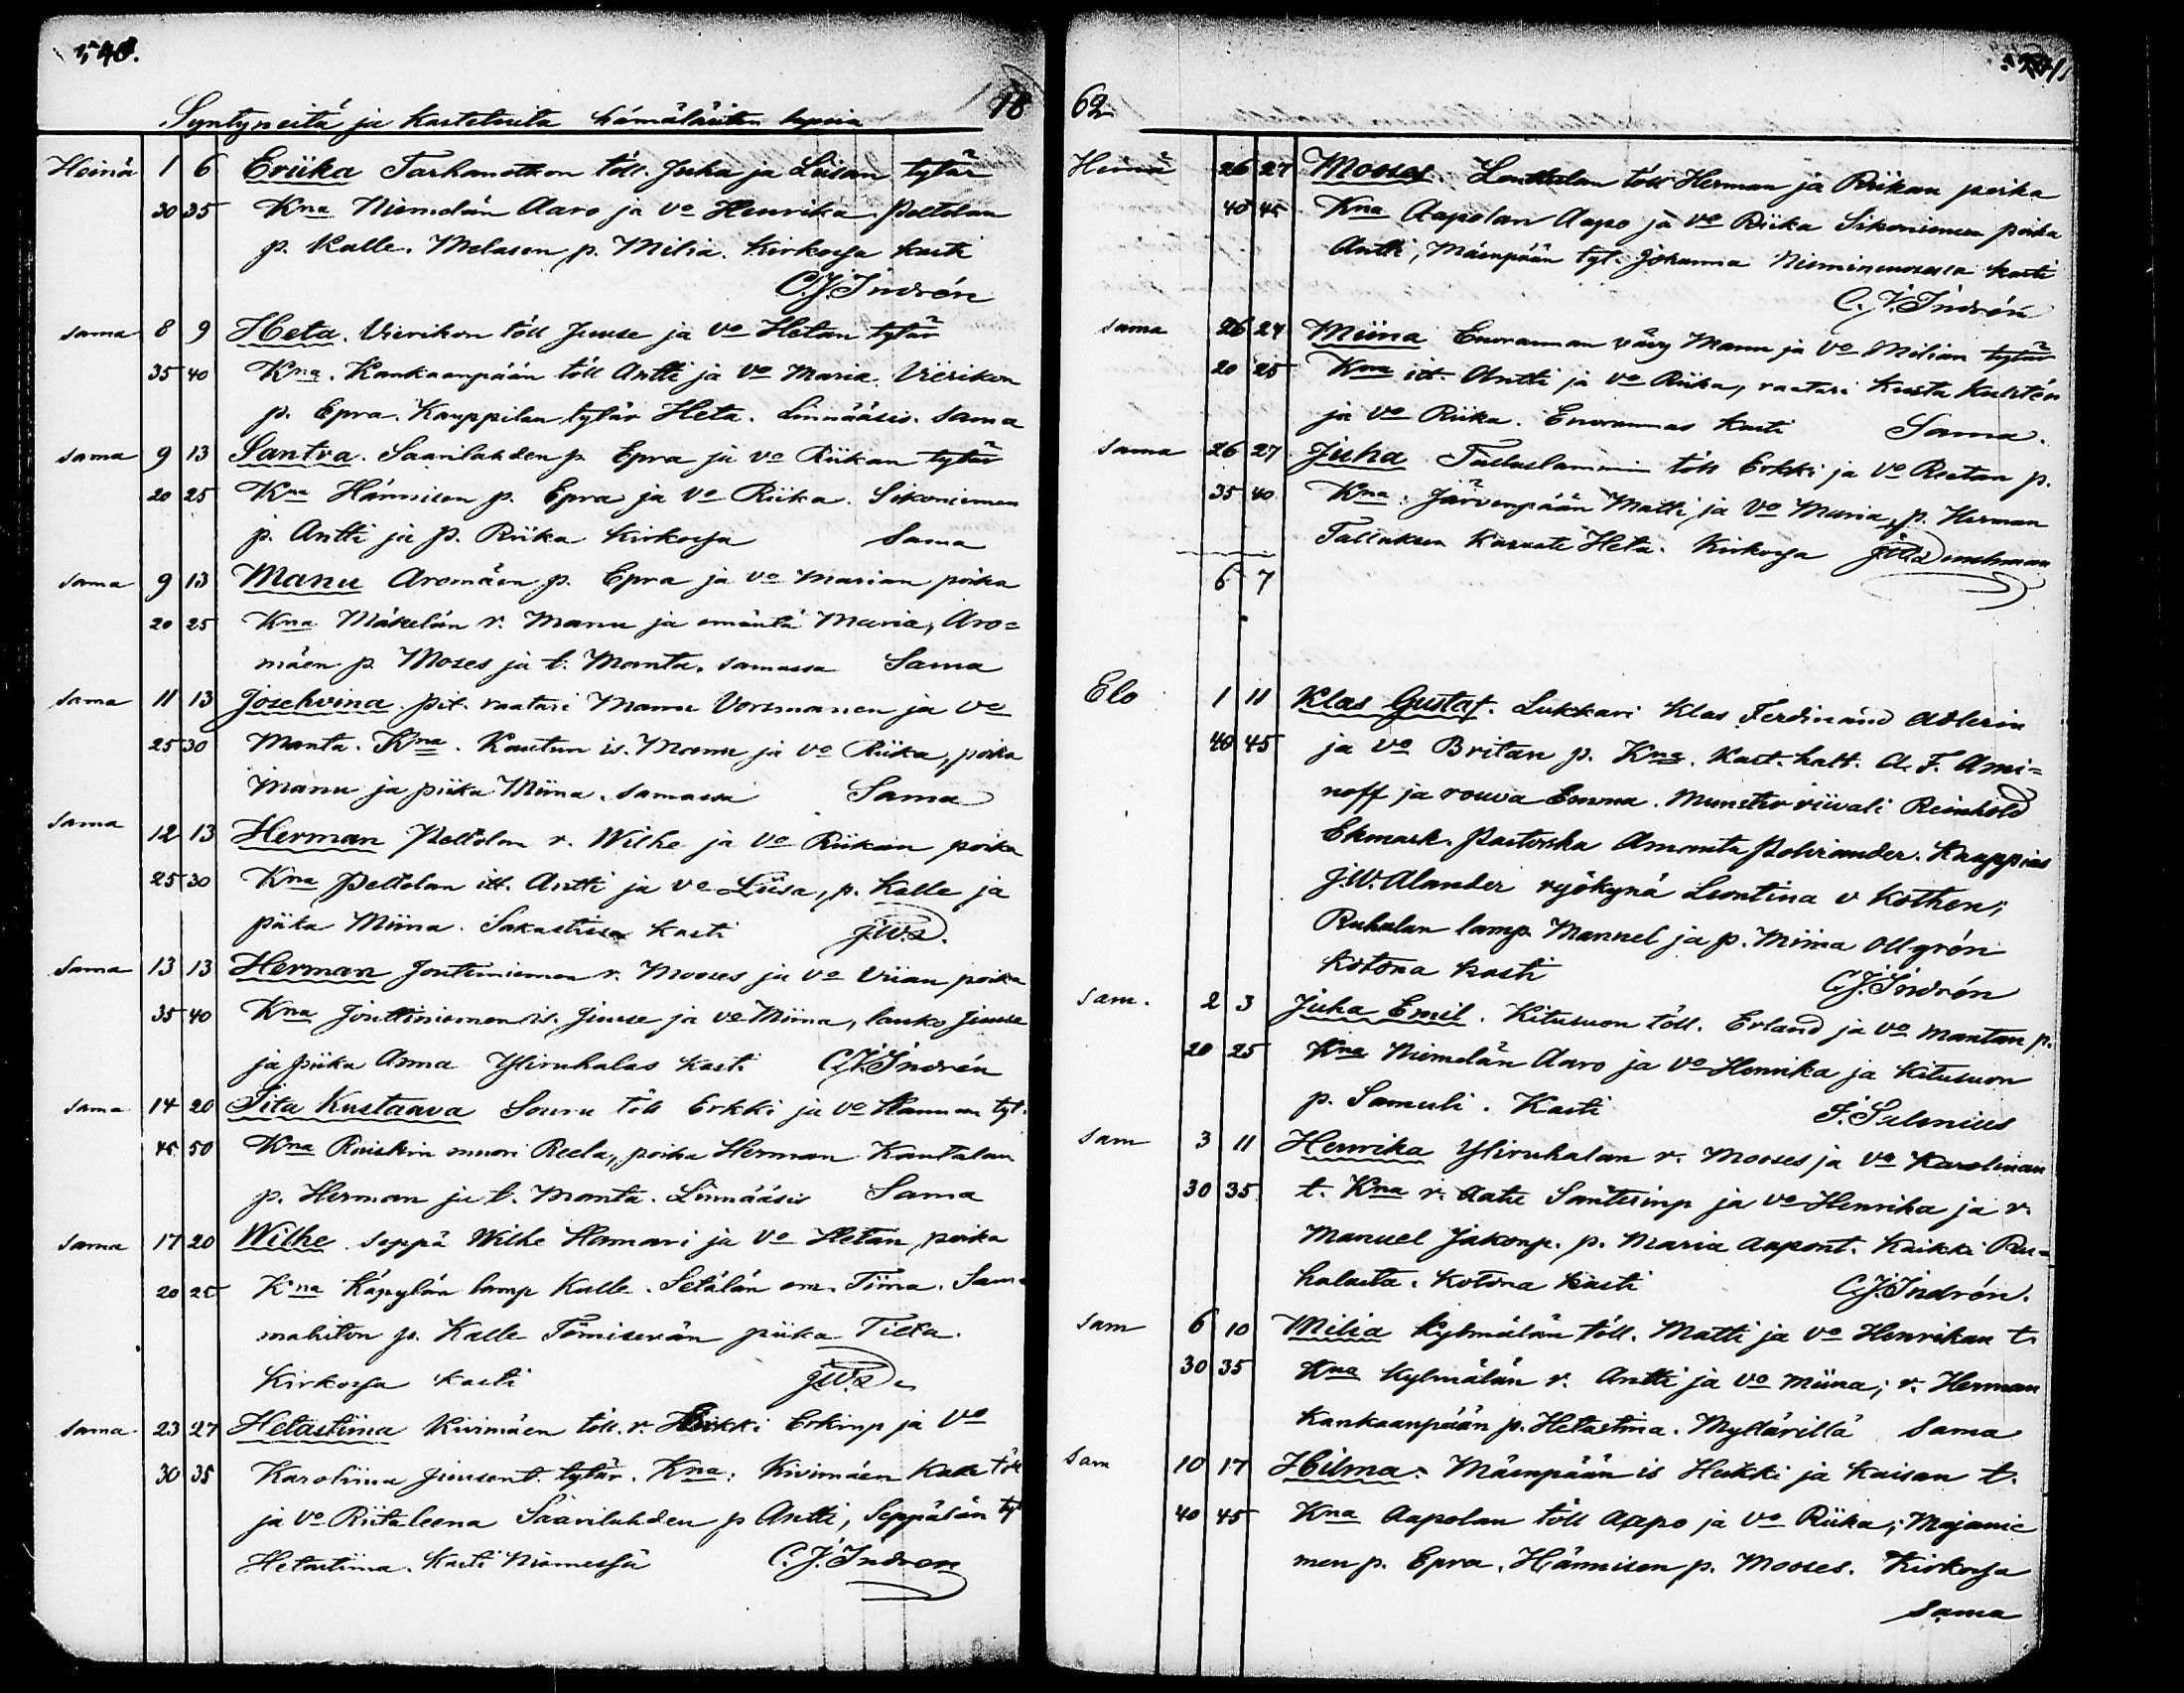 540.
Syntyneitä ja kastetuita hämäläisten lapsia 18
Heinä 1 6 Eriika Tarhanotkon töll. Juha ja Liisan tytär
30 35 Kna Niemelän Aaro ja vo Henrika. Peltolan
p. Kalle. Melasen p. Milia. Kirkossa kasti
C.J. Indrén
sama 8 9 Heta. Vierikon töll Juuse ja vo Hetan tytär
35 40 Kna. Kankaanpään töll Antti ja vo Maria. Vierikon
p. Epra. Kauppilan tytär Heta. Linnääsis. Sama
sama 9 13 Santra. Saarilahden p. Epra ja vo Riikan tytär
20 25 Kna Hännisen p. Epra ja vo Riika. Sikoniemen
p. Antti ja p. Riika Kirkossa Sama
sama 9 13 Manu Aromäen p. Epra ja vo Marian poika
20 25 Kna Mäkelän r. Manu ja emäntä Maria, Aro=
mäen p. Moses ja t. Manta. samassa Sama
sama 11 13 Josehvina. pit. raatari Manu Vorsmanen ja vo
25 30 Manta. Kna. Kautun is. Manu ja vo Riika, poika
Manu ja piika Miina. samassa Sama
sama 12 13 Herman Peltolan r. Wilhe ja vo Riikan poika
25 30 Kna Peltolan itt. Antti ja vo Liisa, p. Kalle ja
piika Miina. Sakastissa kasti J.W.D.
sama 13 13 Herman Jonteiniemen r. Mooses ja vo Viian poika
35 40 Kna Jonttiniemen is. Juuse ja vo Miina, lanko Juuse
ja piika Anna Yliruhalas kasti C.J. Indrén
sama 14 20 Iita Kustaava Souru töll Erkki ja vo Hannan tyt.
45 50 Kna Ruiskin muori Reeta, poika Herman Kautalan
p. Herman ja t. Manta. Linnääsis Sama
sama 17 20 Wilhe seppä Wilhe Hamari ja vo Hetan poika
20 25 Kna Käpylän lamp Kalle. Setälän em. Tiina. Sam=
mahiton p. Kalle Tömisevän piika Tilta.
Kirkossa kasti J.W.D.
sama 23 27 Hetastiina Kivimäen töll. r. Heikki Erkinp ja vo
30 35 Karoliina Juusent. tytär. Kna: Kivimäen Kalle töll
ja vo Riitaleena Saarilahden p Antti, Seppälän tyt
Hetastiina. Kasti Niemessä C.J. Indren
62
Heinä 26 27 Mooses. Lenttulan töll Herman ja Riikan poika
40 45 Kna Aapolan Aapo ja vo Riika Sikoniemen poika
Antti, Mäenpään tyt. Johanna kasti
C.J. Indrén
sama 26 27 Miina Enoranman vävy Manu ja vo Milian tytär
20 25 Kna itt. Antti ja vo Riika, raatari Kusta Kultén
ja vo Riika. Enorannas kasti Sama.
sama 26 27 Juha Talluslammin töll Erkki ja vo Reetan p.
35 40 Kna. Järvenpään Matti ja vo Maria, p. Herman
Talluksen Kasvate Heta. Kirkossa
6 7
Elo 1 11 Klas Gustaf. Lukkari Klas Ferdinand Adlerin
40 45 ja vo Britan p. Kna. Kart. halt. A. F. Ami=
noff ja rouva Emma. Munsterriivali Reinhold
Ekmark. Pastorska Amanta Polviander. Knappias
J.W. Alander ryökynä Leontina v Kothen;
Ruhalan lamp. Mannel ja p. Miina Ollgrén
kotona kasti C.J. Indrén
sam. 2 3 Juha Emil. Kitusuon töll. Erland ja vo Mantan p.
20 25 Kna Niemelän Aaro ja vo Henrika ja Kitusuon
p. Samuli. Kasti F. Salenius
sam 3 11 Henrika Yliruhalan r. Mooses ja vo Karolinan
30 35 t. Kna r. Aatu Santerinp ja vo Henrika ja r.
Manuel Jakonp. p. Maria Aapont. Kaikki Ru=
halasta. Kotona kasti C.J. Indrén.
sam 6 10 Milia Kylmälän töll. Matti ja vo Henrikan t.
30 35 Kna Kylmälän r. Antti ja vo Miina; r. Herman
Kankaanpään p. Hetastina. Myllärillä Sama
sam 10 17 Hilma. Mäenpään is Heikki ja Kaisan t.
40 45 Kna Aapolan töll Aapo ja vo Riika; Majanie
men p. Epra. Hännisen p. Mooses. Kirkossa
Sama